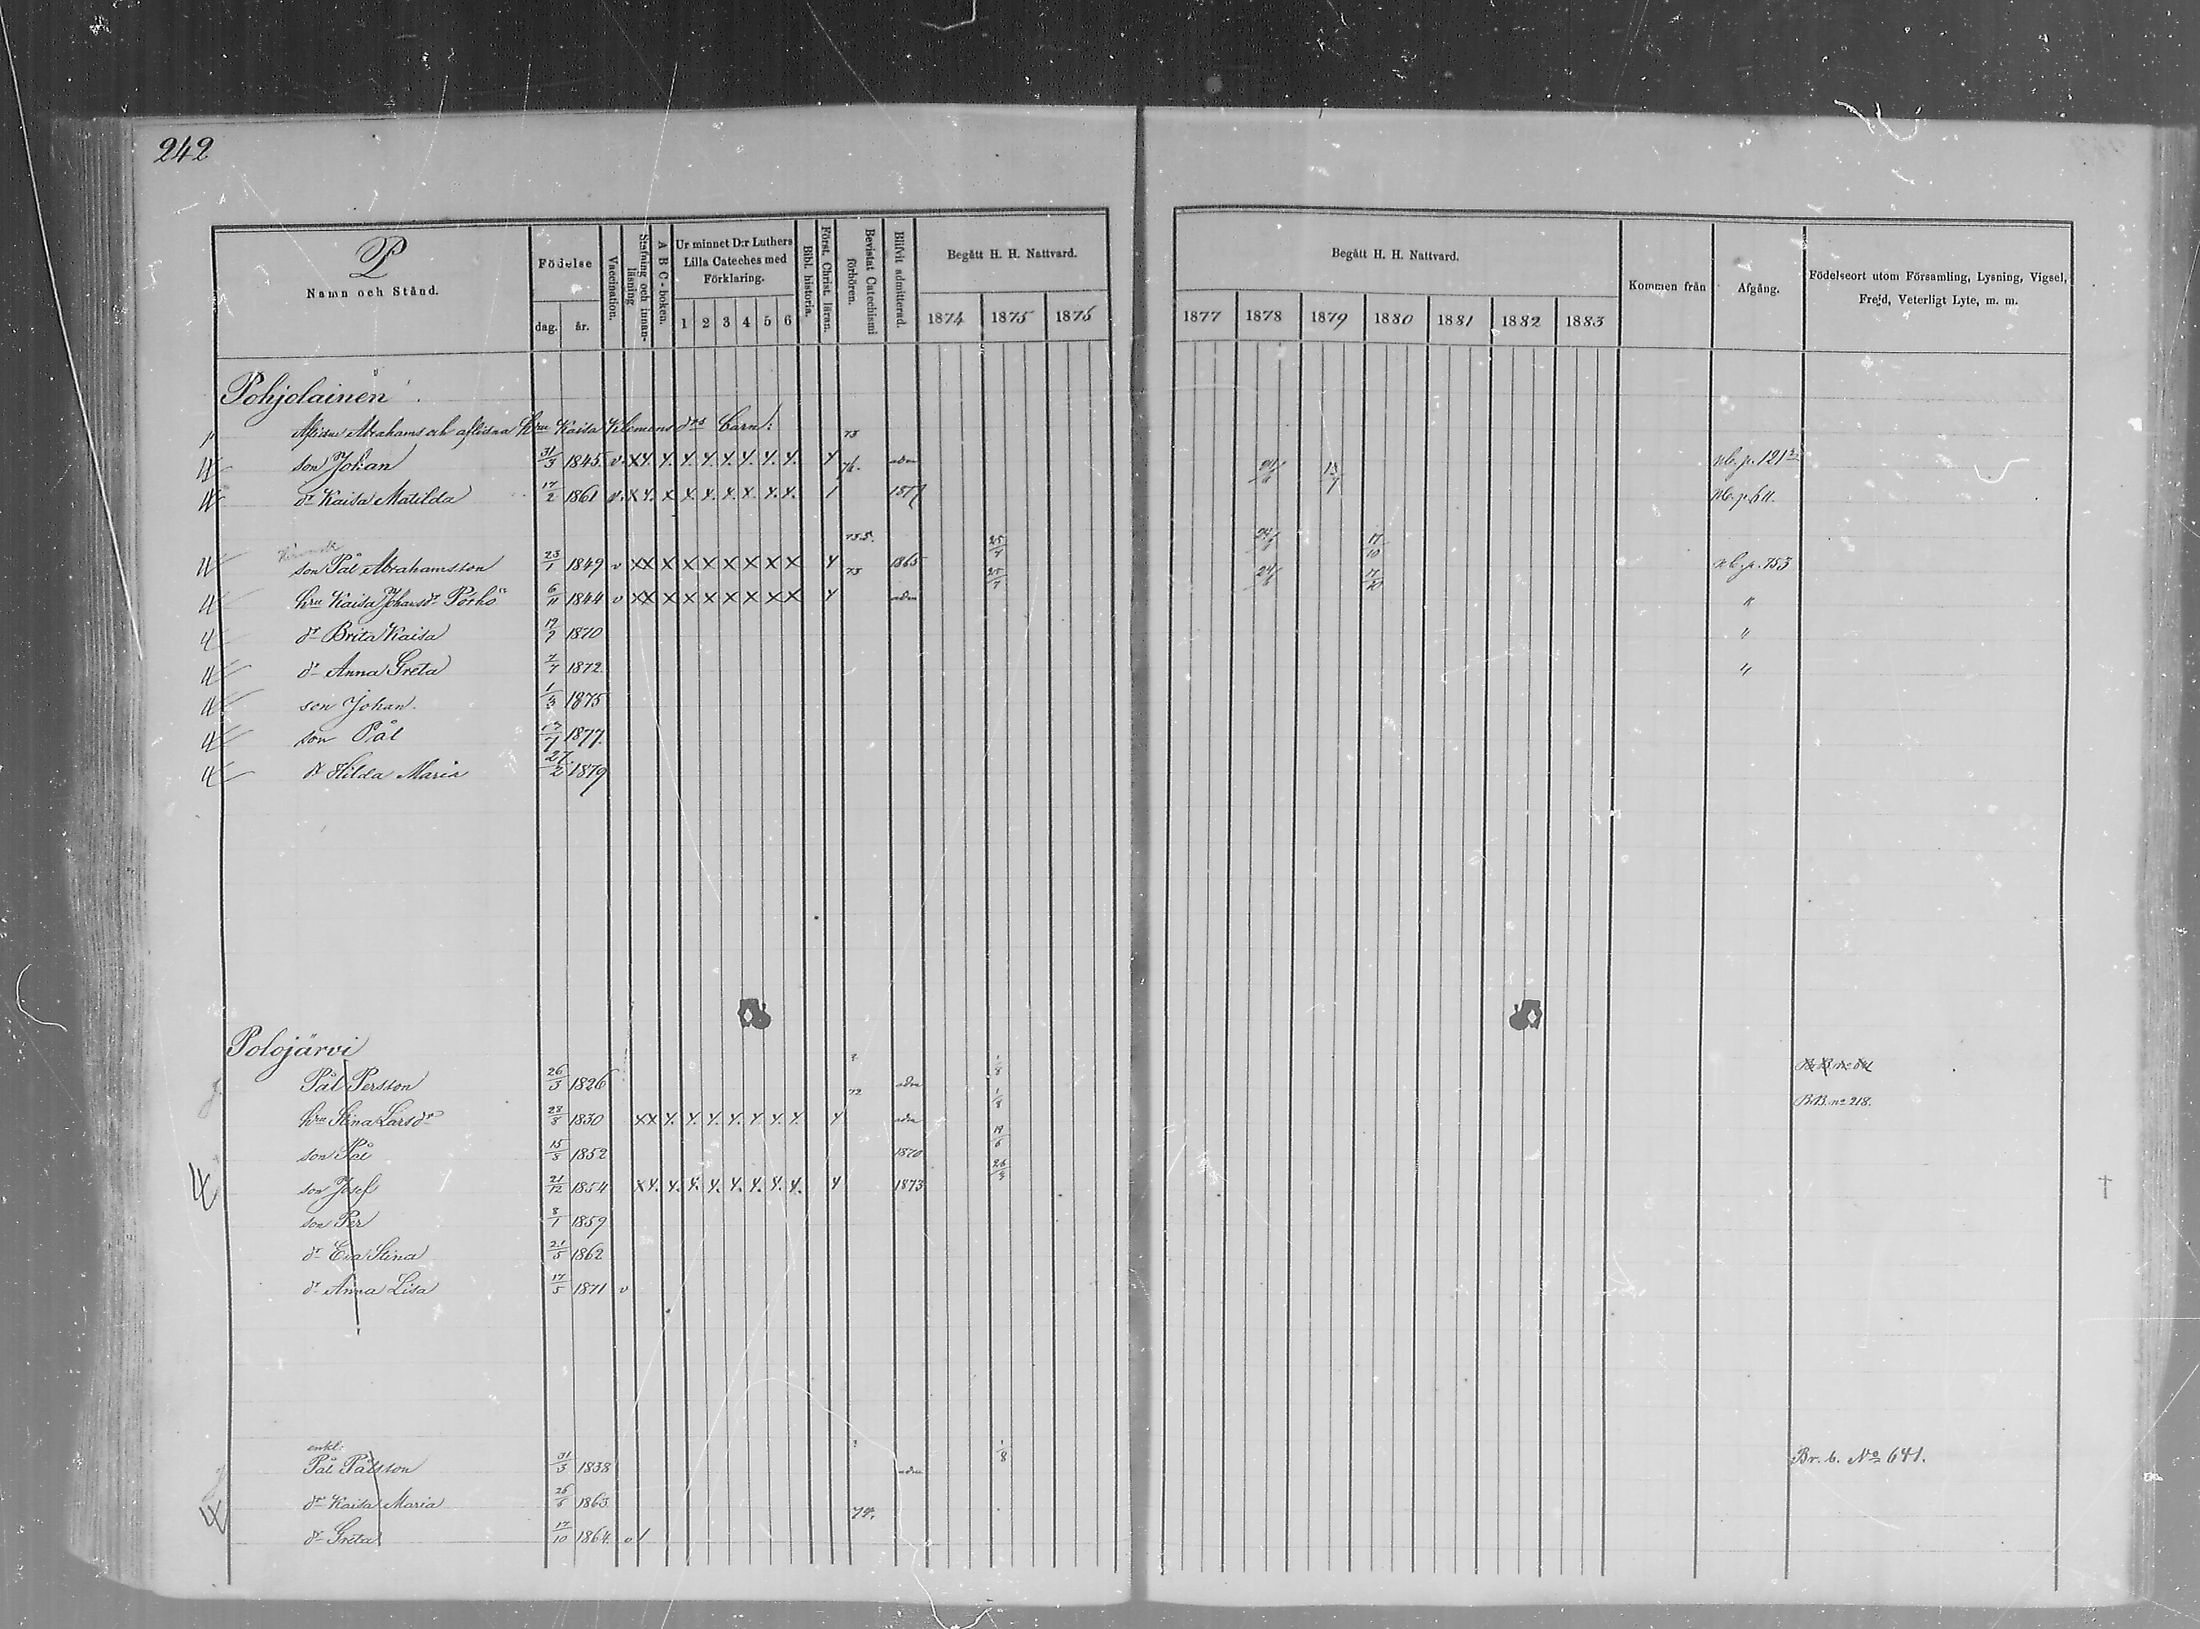 242
P
Namn och Stånd.
Födelse
dag. år.
Vaccination.
Stafning och innanläsning.
A B C-boken.
Ur minnet D:r Luthers Lilla Cateches med Förklaring.
1 2 3 4 5 6
Bibl. historia.
Först. Christ. läran.
Bevistat Catechismi förhören.
Blifvit admitterad.
Begått H. H. Nattvard.
1874 1875 1876
Begått H. H. Nattvard.
1877 1878 1879 1880 1881 1882 1883
Kommen från
Afgång.
Födelseort utom Församling, Lysning, Vigsel, Frejd, Veterligt Lyte, m. m.
Pohjolainen
Aflidne Abrahams och aflidna hru Kaisa Klemens drs barn: 73
son Johan 31/3 1845 v. X Y. Y. Y. Y. Y. Y. Y. Y. Y 76. adm 13/7
dr Kaisa Matilda 17/2 1861 v. X Y. X X. Y. Y. X. Y. Y. 1 1877 nb. p. 611.
son Pål Abrahamsson 23/1 1849 v X X X X X X X X X Y 1865 17/10 nb. p. 753
hru Kaisa Johansdr Pörhö 6/11 1844 v X X X X X X X X X Y 73 adm 24/6 17/10 "
dr Brita Kaisa 1870 "
dr Anna Greta 7/7 1872 "
son Johan. 1/3 1875
son Pål 1877.
dr Hilda Maria 27/2 1879
Polojärvi
Pål Persson 26/3 1826 ? adm 1/8
hru Stina Larsdr 28/8 1830 X X Y. Y. Y. Y. Y. Y. Y. Y 72 adm 1/8 B.B. no 218.
son Pål 15/8 1852 1870 19/6
son Josef 21/12 1854 X Y. Y. Y. Y. Y. Y. Y. Y. Y 1873
son Per 8/1 1859
dr Eva Stina 21/5 1862
dr Anna Lisa 17/5 1871 v
enkl.
Pål Pålsson 31/3 1838 ? adm 1/8 Br. b. No 641.
dr Kaisa Maria 1863
dr Greta 17/10 1864. v / 74.